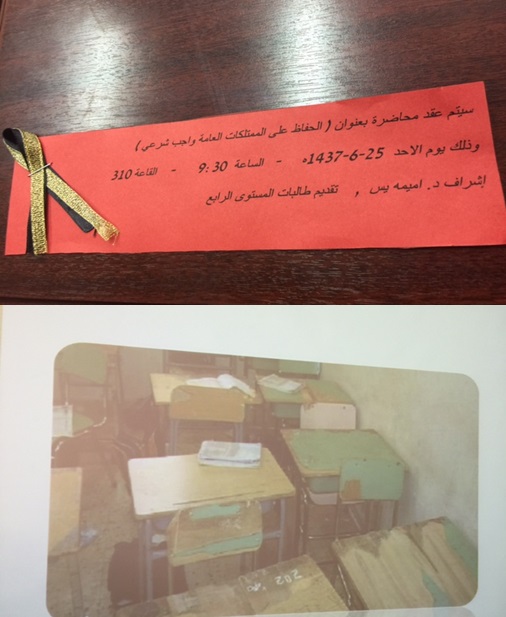 سيتم عقد محاضرة بعنوان ( الحفاظ على الممتلكات العامة واجب شرعي )
وذلك يوم الاحد 25-6-1437ه - الساعة 9:30 - القاعة 310
إشراف د. اميمه يس , تقديم طالبات المستوى الرابع